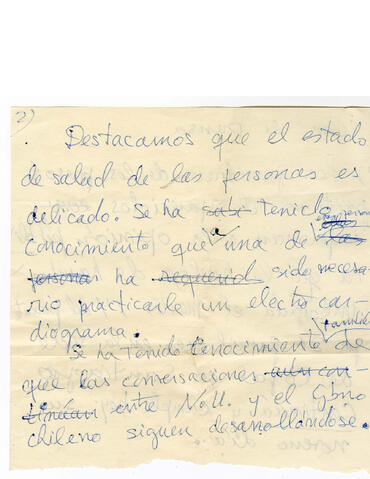 2)
. Destacamos que el estado
de salud de las personas es
delicado. Se ha tenido
conocimiento que a una de las
personas ha requerido sido necesa-
rio practicarle un electro car-
diograma.
también
Se ha tenido conocimiento de
que las conversaciones aún con-
tinúan entre N.U. y el Gbno
chileno siguen desarrollándose.